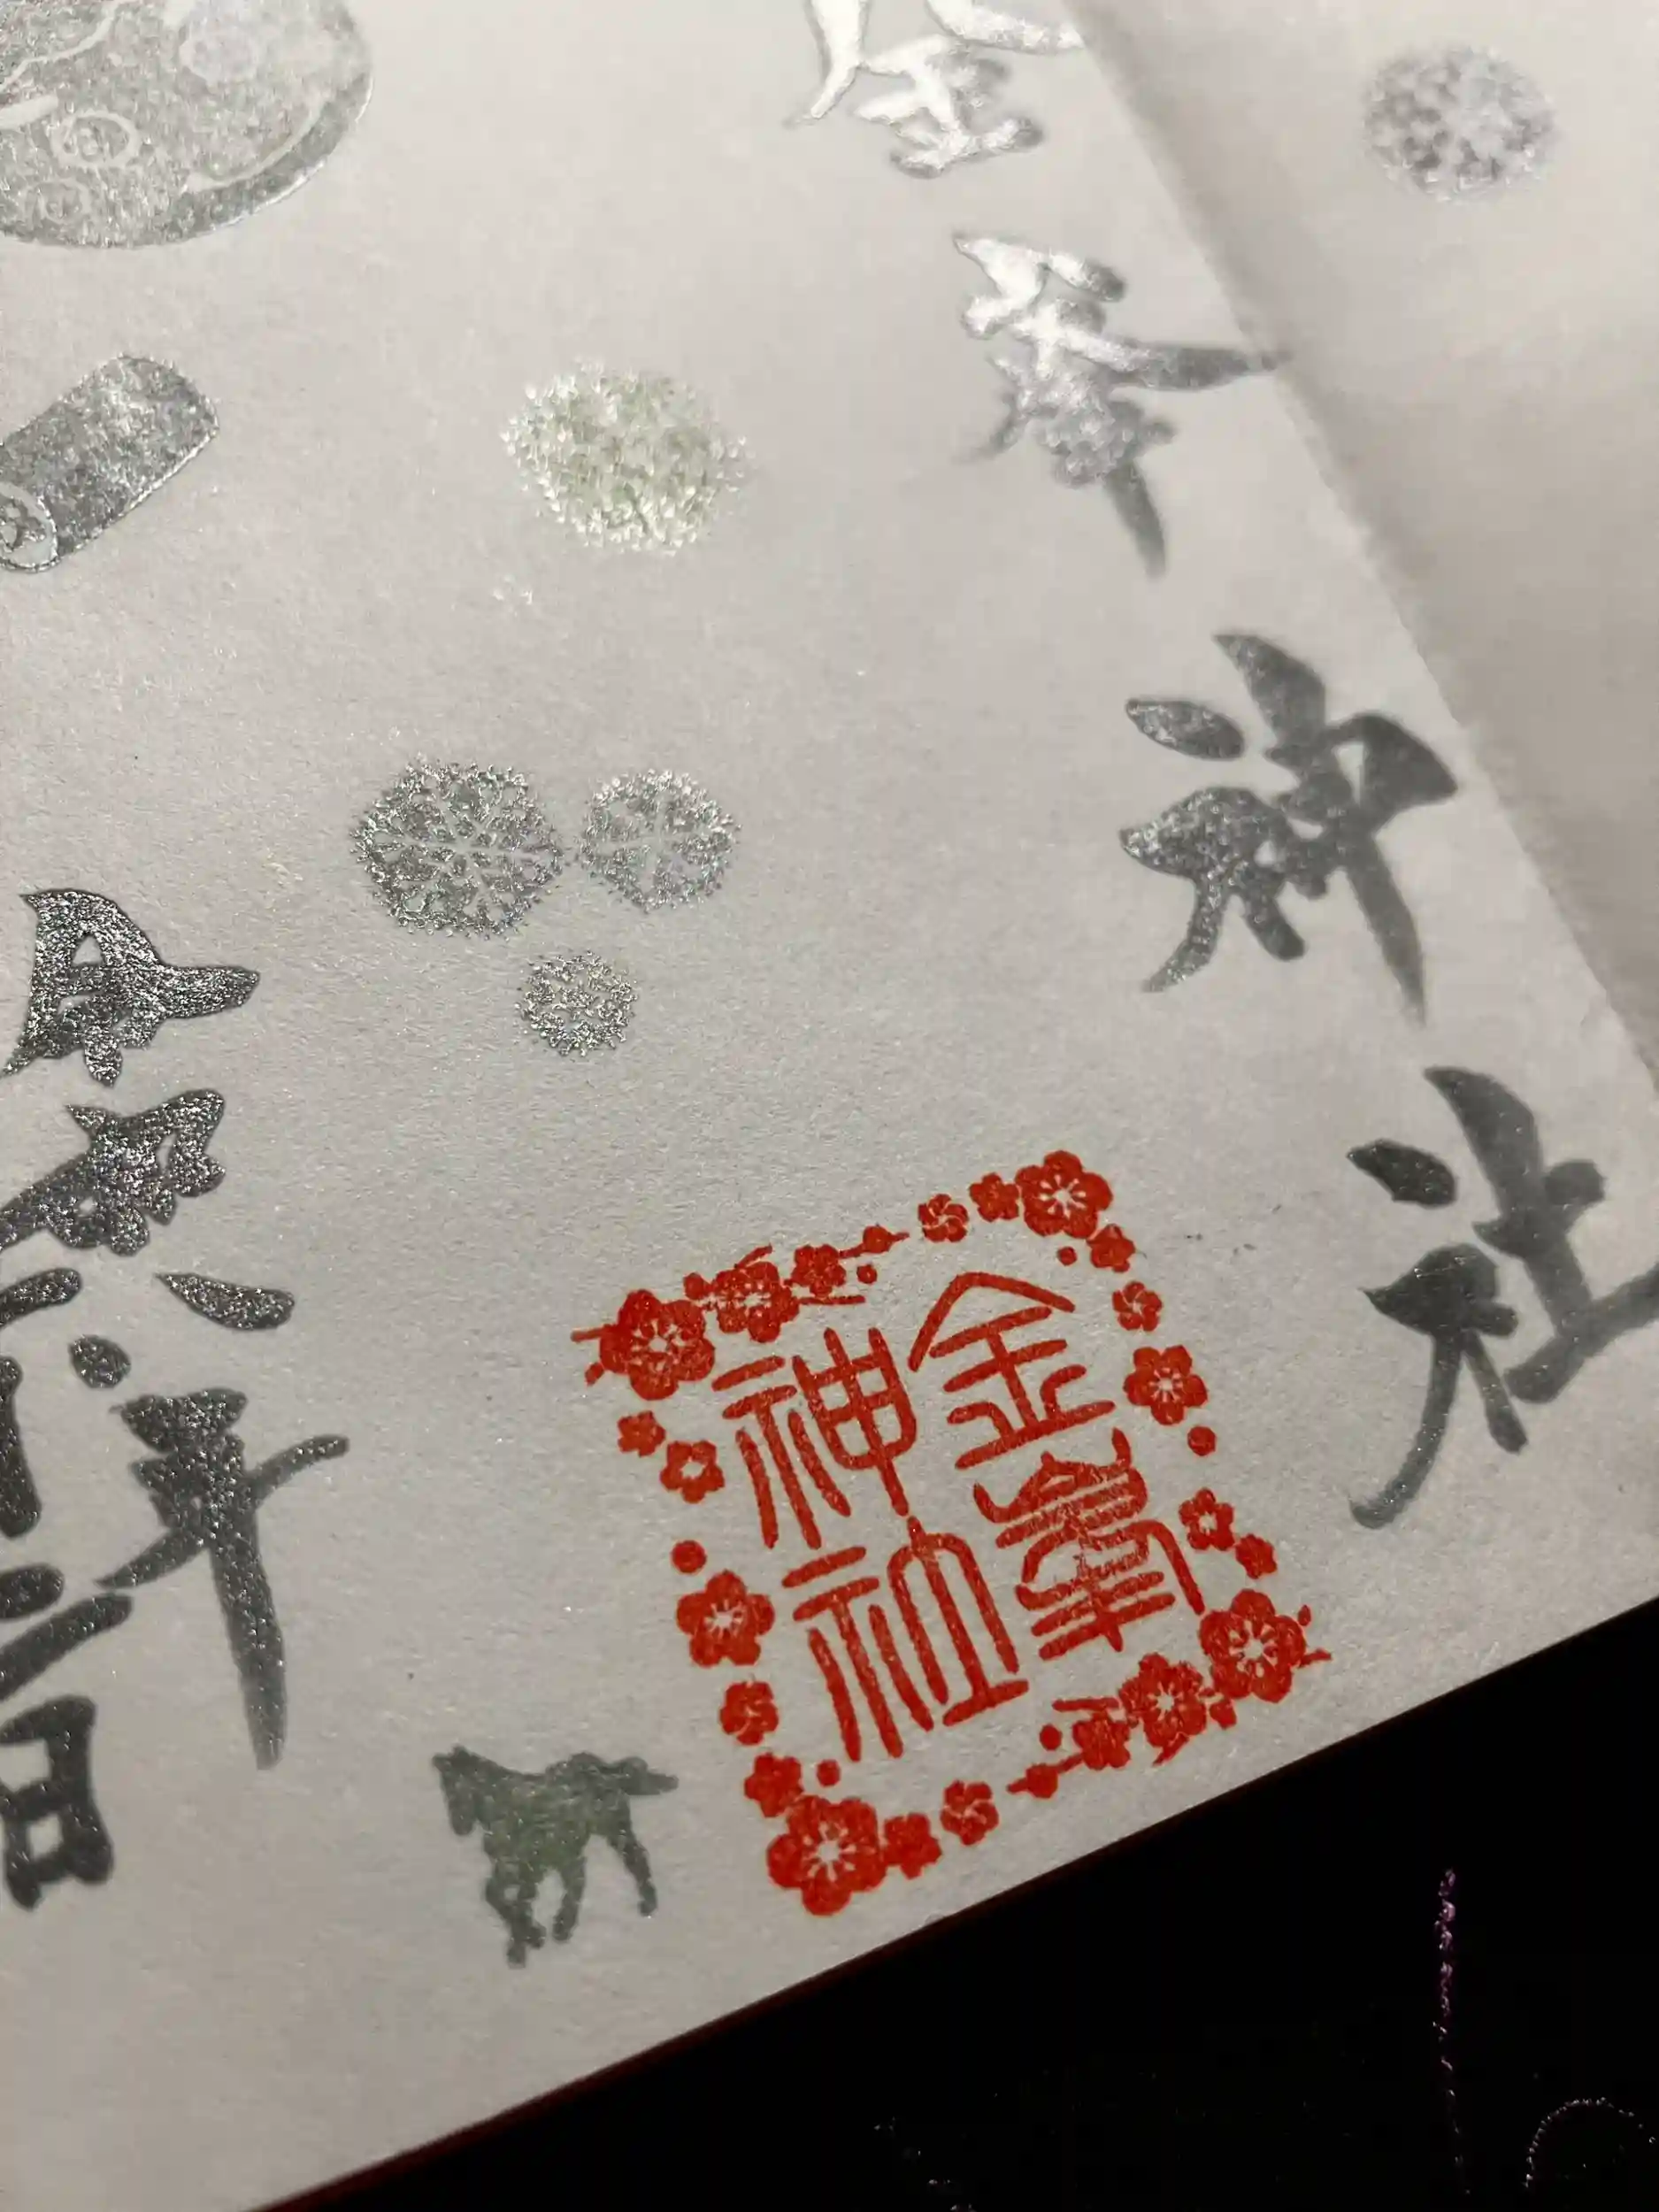 金峯神社
令和八年
金峯
神社